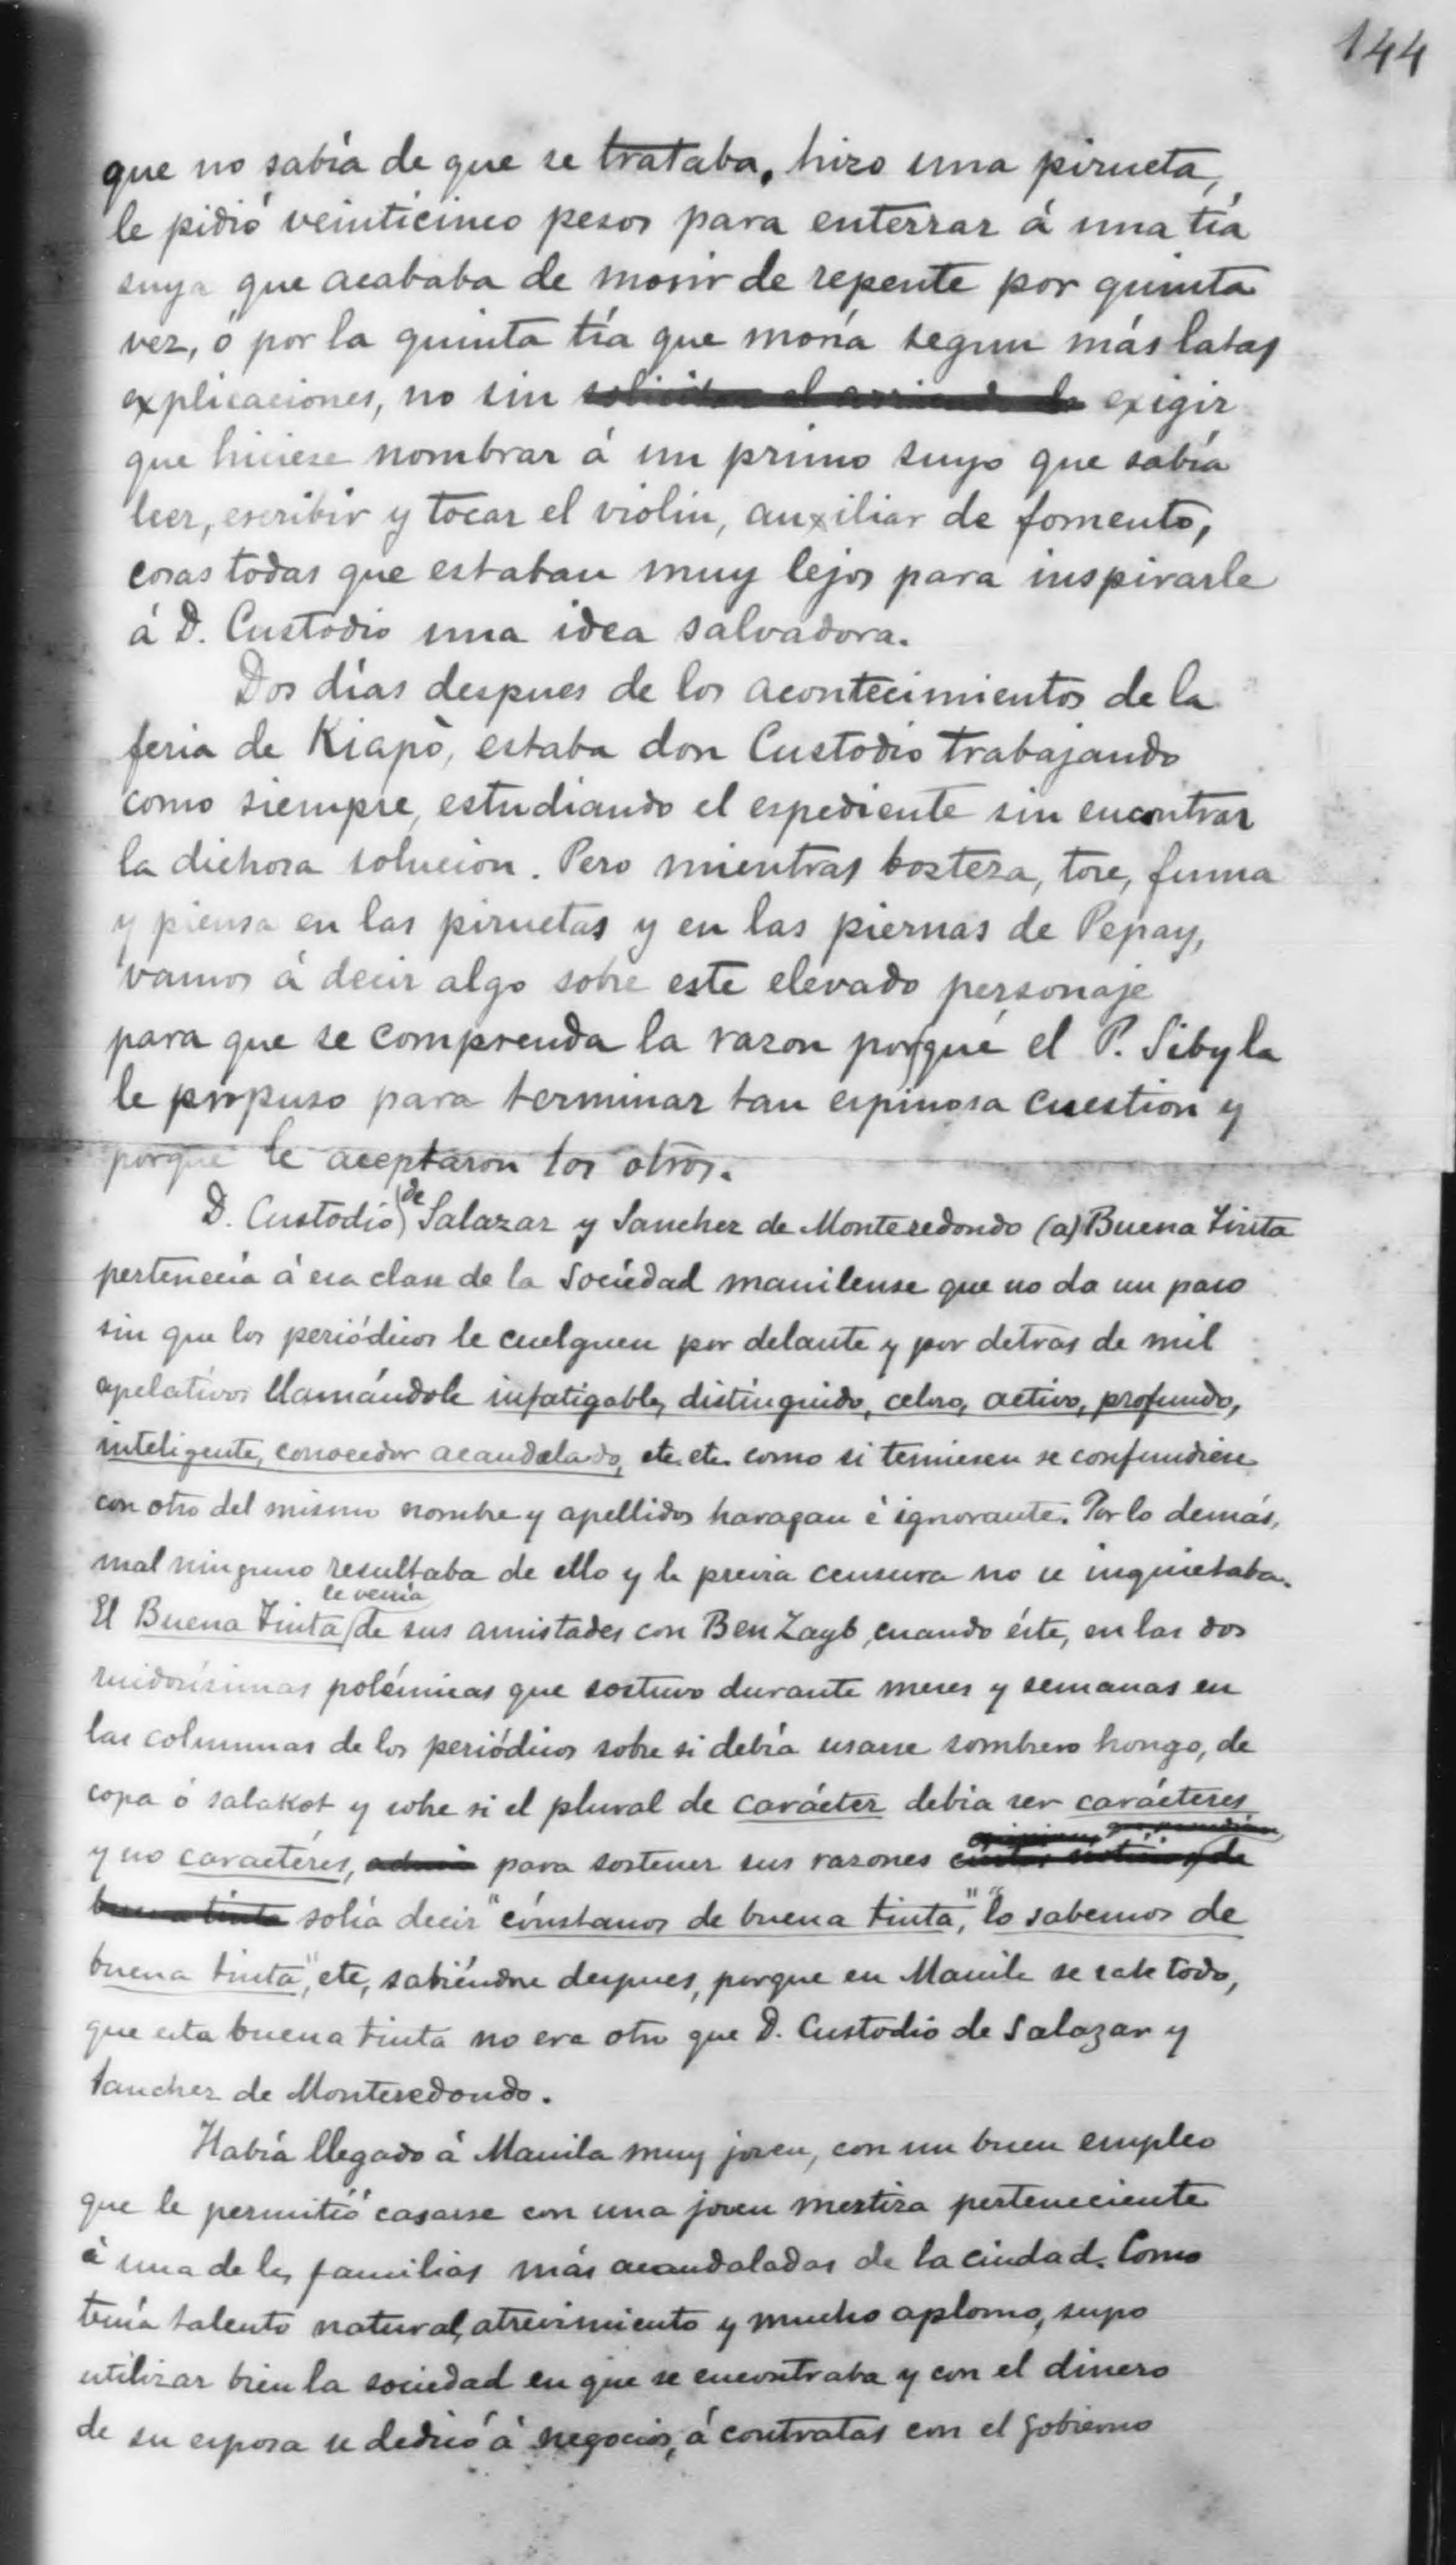 144
que no sabía de que se trataba, hizo una pirueta,
le pidió veinticinco pesos para enterrar á una tía
suya que acababa de morir de repente por quinta
vez, ó por la quinta tía que moría segun más latas
explicaciones, no sin solicitar el arriendo de exigir
que hiciese nombrar á un primo suyo que sabía
leer, escribir y tocar el violin, auxiliar de fomento,
cosas todas que estaban muy lejos para inspirarle
á D. Custodio una idea salvadora.
Dos días despues de los acontecimientos de la
feria de Kiapò, estaba don Custodio trabajando
como siempre, estudiando el espediente sin encontrar
la dichosa solucion. Pero mientras bosteza, tose, fuma
y piensa en las piruetas y en las piernas de Pepay,
vamos á decir algo sobre este elevado personaje
para que se comprenda la razon porqué el P. Sibyla
le propuso para terminar tan espinosa cuestion y
porqué le aceptaron los otros.
D. Custodio de Salazar y Sanchez de Monteredondo (a) Buena Tinta
pertenecía á esa clase de la Sociedad manilense que no da un paso
sin que los periódicos le cuelguen por delante y por detras de mil
apelativos llamándole infatigable, distinguido, celoso, activo, profundo,
inteligente, conocedor acaudalado, etc. etc. como si temiesen se confundiese
con otro del mismo nombre y apellidos haragan é ignorante. Por lo demás,
mal ninguno resultaba de ello y la previa censura no se inquietaba.
El Buena Tinta le venia de sus amistades con Ben Zayb, cuando éste, en las dos
ruidosísimas polémicas que sostuvo durante meses y semanas en
las columnas de los periódicos sobre si debía usarse sombrero hongo, de
copa ó salakot y sobre si el plural de carácter debia ser carácteres
y no caractéres, para sostener sus razones
buena tinta solía decir "cónstanos de buena tinta," "lo sabemos de
buena tinta," etc, sabiéndose despues, porque en Manila se sabe todo,
que esta buena tinta no era otro que D. Custodio de Salazar y
Sanchez de Monteredondo.
Había llegado á Manila muy joven, con un buen empleo
que le permitió casarse con una joven mestiza perteneciente
á una de las familias más acaudaladas de la ciudad. Como
tenía talento natural, atrevimiento y mucho aplomo, supo
utilizar bien la sociedad en que se encontraba y con el dinero
de su esposa se dedicó á negocios, á contratas con el gobierno